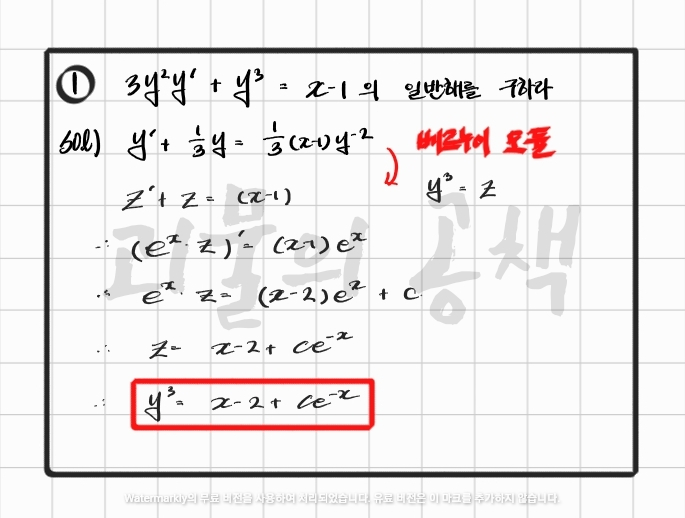 ① 3y²y′ + y³ = x-1 의 일반해를 구하라
sol) y′ + 1/3 y = 1/3 (x-1) y⁻² 베르누이 모플
z′ + z = (x-1) y³ = z
∴ (eˣ · z)′ = (x-1) eˣ
∴ eˣ · z = (x-2) eˣ + c
∴ z = x-2 + ce⁻ˣ
∴ y³ = x-2 + ce⁻ˣ
괴물의 공책
Watermarkly의 무료 버전을 사용하여 처리되었습니다. 유료 버전은 이 마크를 추가하지 않습니다.